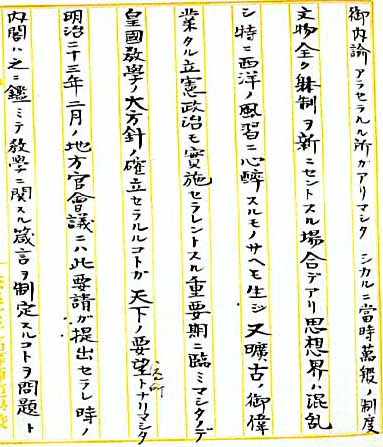 御内諭アラセラルル所ガアリマシタ シカルニ當時萬般ノ制度
文物全ク躰制ヲ新ニセントスル場合デアリ思想界ハ混乱
シ特ニ西洋ノ風習ニ心醉スルモノサヘモ生ジ又曠古ノ御偉
業タル立憲政治モ實施セラレントスル重要期ニ臨ミマシタノデ
皇國敎學ノ大方針ノ確立セラルルコトガ天下ノ要望トナリマシタ
明治二十三年二月ノ地方官會議ニハ此要請ガ提出セラレ時ノ
内閣ハ之ニ鑑ミテ敎學ニ関スル箴言ヲ制定スルコトヲ問題ト